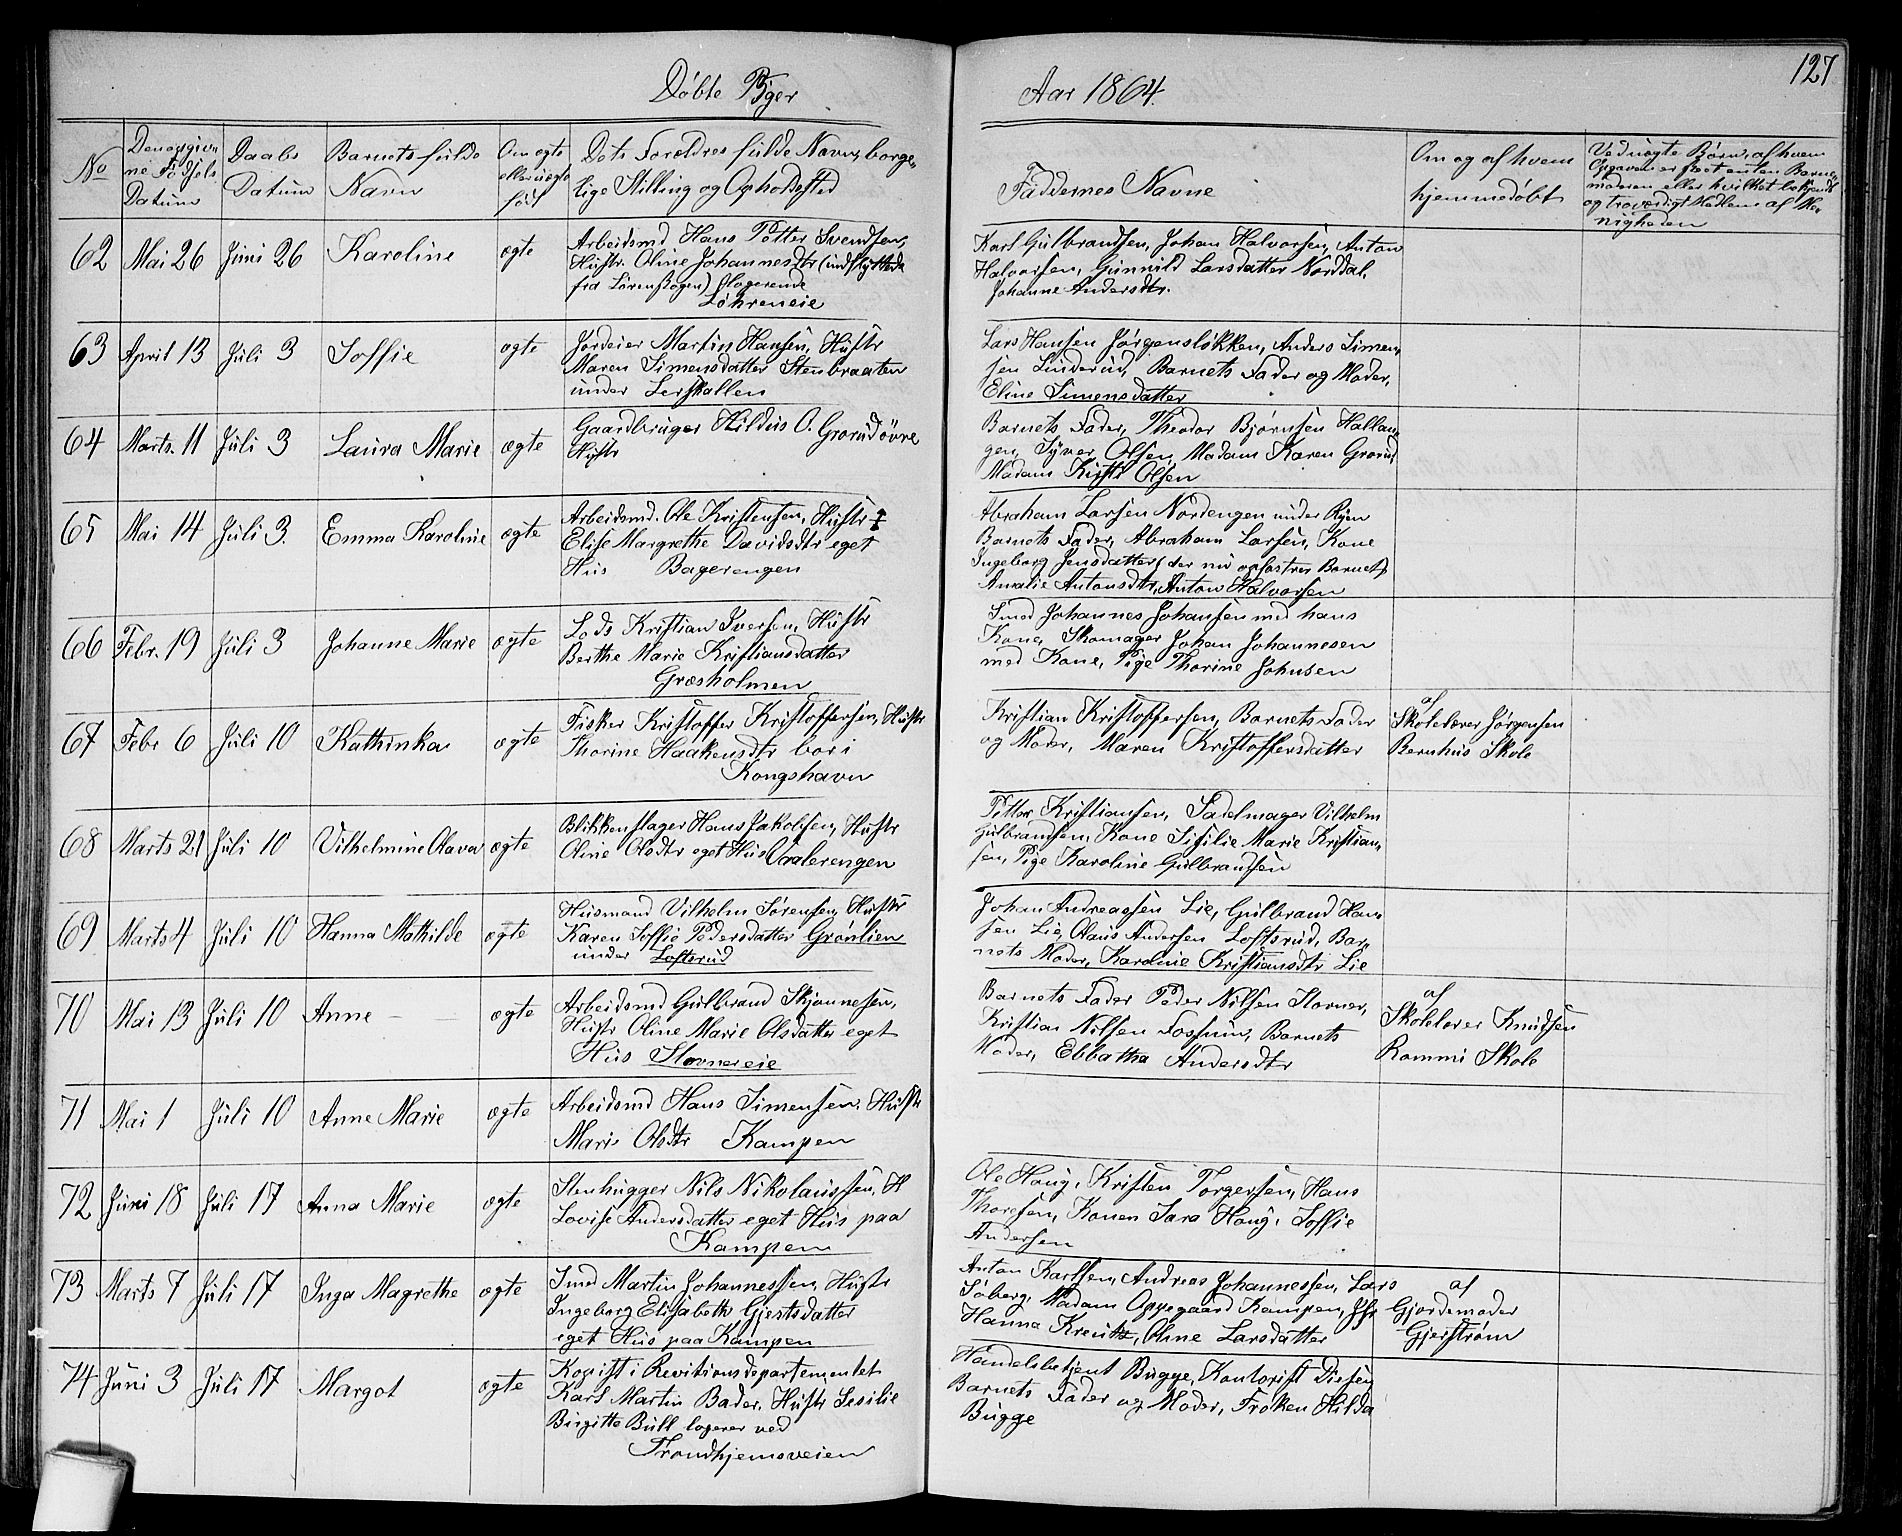 127
Døbte Piger Aar 1864.
No
Den opgivne Fødsels Datum
Daabs Datum
Barnets fulde Navn
Om ægte eller uægte født
Dets Forældres fulde Navn, borgerlige Stilling og Opholdssted
Faddernes Navne
Om og af hvem hjemmedøbt
Ved uægte Børn, af hvem Opgaven er skeet enten Barnemoderen eller hvilket bekjendt og troværdigt Medlem af Menigheden
62 Mai 26 Juni 26 Karoline ægte
Arbeidsmd Hans Petter Svendsen,
Hustr. Oline Johannesdtr (indflyttede
fra Lørenskogen) logerende
Løhreneie
Karl Gulbrandsen, Johan Halvorsen, Anton
Halvorsen, Gunnild Larsdatter Norddal,
Johanne Andersdtr.
63 April 13 Juli 3 Soffie ægte
Jordeier Martin Hansen, Hustr
Maren Simensdatter Stenbraaten
under Lerskallen
Lars Hansen Jørgensløkken, Anders Simen-
sen Linderud, Barnets Fader og Moder,
Eline Simensdatter
64 Marts. 11 Juli 3 Laura Marie ægte
Gaardbruger Hildus O. Grorudøvre
Hustr
Barnets Fader, Theodor Bjørnsen Hallan-
gen, Syver Olsen, Madam Karen Grorud,
Madam Kristi Olsen
65 Mai 14 Juli 3. Emma Karoline ægte
Arbeidsmd. Ole Kristensen, Hustr ‡
Elise Margrethe Davidsdtr eget
Hus Bagerengen
Abraham Larsen Nordengen under Ryen
Barnets Fader, Abraham Larsen, Kone
Ingeborg Jensdatter (der nu opfostrer Barnet)
Amalie Antonsdtr, Anton Halvorsen
66 Febr. 19 Juli 3 Johanne Marie ægte
Lods Kristian Iversen, Hustr
Berthe Marie Kristiansdatter
Græsholmen
Smed Johannes Johansen med hans
Kone, Skomager Johan Johannesen
med Kone, Pige Thorine Johnsen
67 Febr 6 Juli 10 Kathinka ægte
Fisker Kristoffer Kristoffersen, Hustr
Thorine Haakensdtr bor i
Kongshavn
Kristian Kristoffersen, Barnets Fader
og Moder, Maren Kristoffersdatter
af
Skolelærer Jørgensen
Bernhus Skole
68 Marts 21 Juli 10 Vilhelmine Olava ægte
Blikkenslager Hans Jakobsen, Hustr
Oline Olsdtr eget Hus Vaalerengen
Petter Kristiansen, Sadelmager Vilhelm
Gulbrandsen, Kone Sisilie Marie Kristian-
sen, Pige Karoline Gulbrandsen
69 Marts 4 Juli 10 Hanna Mathilde ægte
Husmand Vilhelm Sørensen, Hustr
Karen Soffie Pedersdatter Grønlien
under Loftsrud
Johan Andreassen Lie, Gulbrand Han-
sen Lie, Olaus Andersen Loftsrud, Bar-
nets Moder, Karoline Kristiansdtr Lie
70 Mai 13 Juli 10 Anne - - ægte
Arbeidsmd Gulbrand Skjønnesen,
Hustr Oline Marie Olsdatter eget
Hus Stovnereie
Barnets Fader Peder Nilsen Stovner,
Kristian Nilsen Fossum, Barnets
Moder, Ebbatha Andersdtr
af
Skolelærer Knudsen
Rommi Skole
71 Mai 1 Juli 10 Anne Marie ægte
Arbeidsmd Hans Simensen, Hustr
Marie Olsdtr Kampen
72 Juni 18 Juli 17 Anna Marie ægte
Stenhugger Nils Nikolaussen, H
Lovise Andersdatter eget Hus paa
Kampen
Ole Haug, Kristen Torgersen, Hans
Thoresen, Konen Sara Haug, Soffie
Andersen
73 Marts 7 Juli 17 Inga Magrethe ægte
Smed Martin Johannessen, Hustr
Ingeborg Elisabeth Gjertsdatter
eget Hus paa Kampen
Anton Karlsen, Andreas Johannessen, Lars
Søberg, Madam Oppegaard Kampen, Jfr
Hanna Kreutz, Oline Larsdatter
af
Gjordemoder
Gjerstrøm
74 Juni 3 Juli 17 Margot ægte
Kopist i Revitionsdepartementet
Karl Martin Bader, Hustr Sesilie
Birgitte Bull logerer ved
Trondhjemsveien
Handelsbetjent Bugge, Kontorist Diesen
Barnets Fader og Moder, Frøken Hilda
Bugge